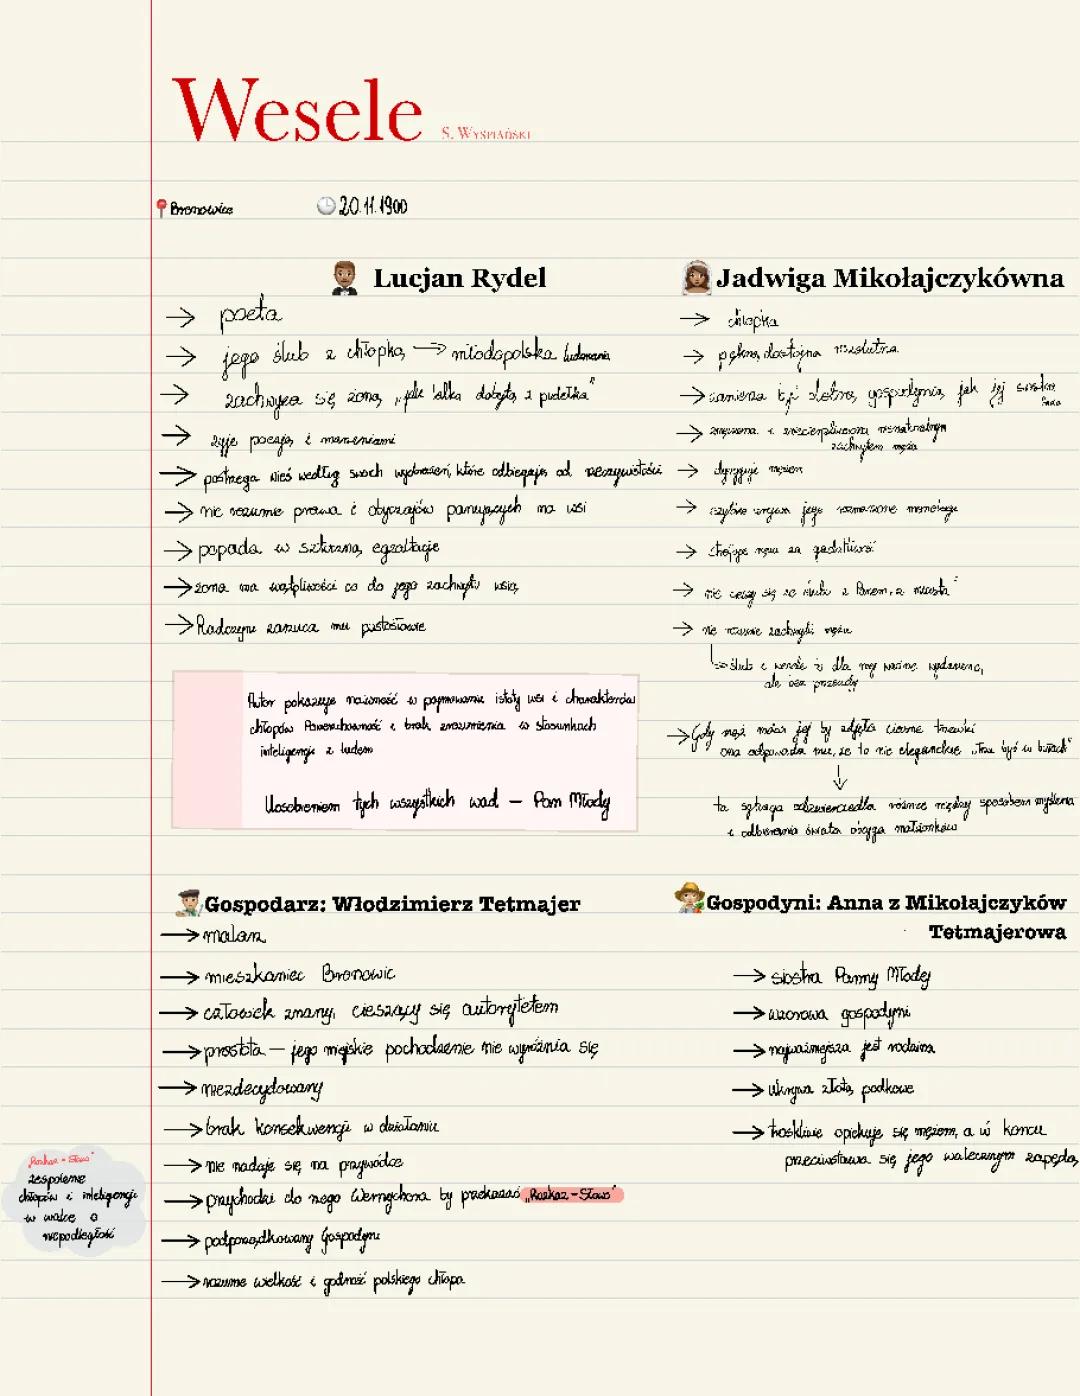 Wesele
S. Wyspiański
Bronowice
20.11.1900
Lucjan Rydel
→ poeta
→ jego ślub z chłopką → młodopolska ludomania
→ zachwyca się żoną, „jak lalka dobyta z pudełka"
→ żyje poezją i marzeniami
→ postrzega wieś według swoich wyobrażeń, które odbiegają od rzeczywistości
→ nie rozumie prawa i obyczajów panujących na wsi
→ popada w sztuczną egzaltację
→ żona ma wątpliwości co do jego zachwytu wsią
→ Radczyni zarzuca mu pustosłowie
Autor pokazuje naiwność w pojmowaniu istoty wsi i charakterów
chłopów. Powierzchowność i brak zrozumienia w stosunkach
inteligencji z ludem
Uosobieniem tych wszystkich wad – Pan Młody
Jadwiga Mikołajczykówna
→ chłopka
→ piękna, dostojna, rezolutna
→ zamierza być dobrą gospodynią, jak jej siostra
Anna
→ zmęczona i zniecierpliwiona nienaturalnym
zachwytem męża
→ dyryguje mężem
→ szybko urywa jego rozmarzone monologi
→ strofuje męża za gadatliwość
→ nie cieszy się ze ślubu z Panem „z miasta"
→ nie rozumie zachwytu męża
↳ ślub i wesele to dla niej ważne wydarzenie,
ale bez przesady
→ Gdy mąż mówi jej by zdjęła ciasne trzewiki
ona odpowiada mu, że to nie eleganckie „Trza być w butach"
↓
ta sytuacja odzwierciedla różnice między sposobem myślenia
i odbierania świata obojga małżonków
Gospodarz: Włodzimierz Tetmajer
→ malarz
→ mieszkaniec Bronowic
→ człowiek znany, cieszący się autorytetem
→ prostota – jego miejskie pochodzenie nie wyróżnia się
→ niezdecydowany
→ brak konsekwencji w działaniu
→ nie nadaje się na przywódcę
→ przychodzi do niego Wernyhora by przekazać „Rozkaz – Słowo"
→ podporządkowany Gospodyni
→ rozumie wielkość i godność polskiego chłopa
„Rozkaz – Słowo"
zespolenie
chłopów i inteligencji
w walce o
niepodległość
Gospodyni: Anna z Mikołajczyków
Tetmajerowa
→ siostra Panny Młodej
→ wzorowa gospodyni
→ najważniejsza jest rodzina
→ Ukrywa złotą podkowę
→ troskliwie opiekuje się mężem, a w końcu
przeciwstawia się jego walecznym zapędą